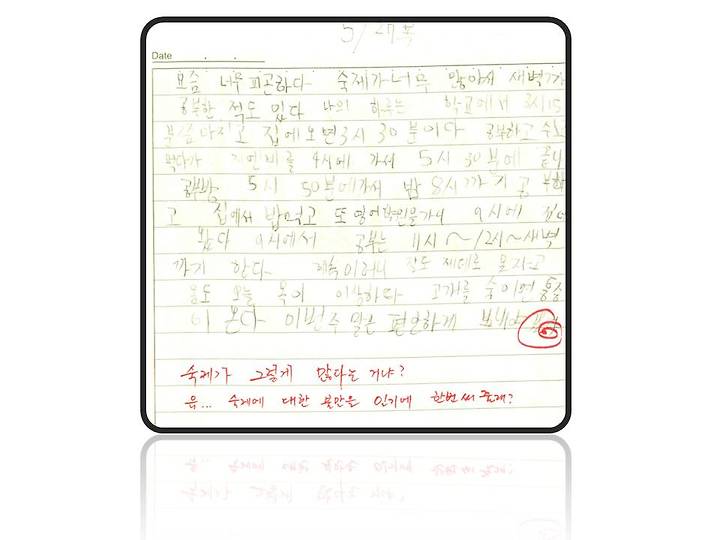 5/27목
Date
요즘 너무 피곤하다 숙제가 너무 많아서 새벽까
공부한 적도 있다 나의 하루는 학교에서 3시15
분 끝마치고 집에 오면 3시 30분이다 공부하고
먹다가 4시에 가서 5시 30분에 끝
공부방 5시 50분에 가서 밤 8시까지 공부하
고 집에서 밥먹고 또 영어학원을 가니 9시에 집에
왔다 9시에서 공부는 11시~12시~새벽
까지 한다 계속 이러니 잠도 제대로 못자고
몸도 오늘 목이 이상하다 고개를 숙이면 통증
이 온다 이번주 말은 편안하게 보내야
숙제가 그렇게 많다는 거냐?
음... 숙제에 대한 불만을 일기에 한번 써 줄래?